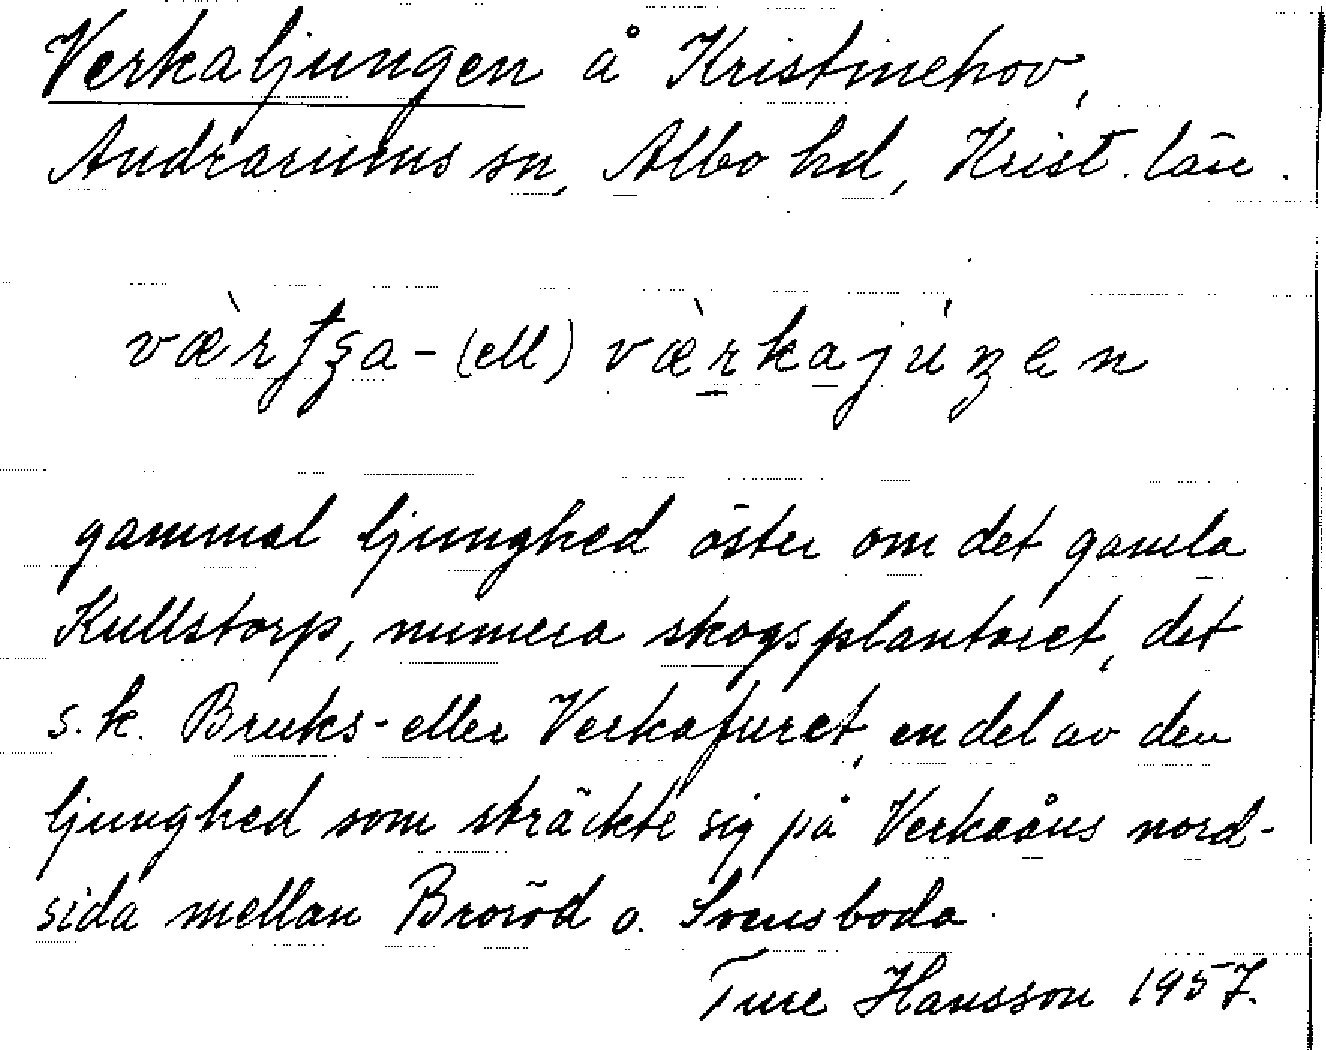 Verkaljungen å Kristinehov,
Andrarums sn, Albo hd, Krist. län.
værtʂa- (ell) værkajúŋen
gammal ljunghed öster om det gamla
Kullstorp, numera skogsplanterat, det
s.k. Bruks- eller Verkafuret, en del av den
ljunghed som sträckte sig på Verkaåns nord-
sida mellan Broröd o. Svensboda.
Ture Hansson 1957.